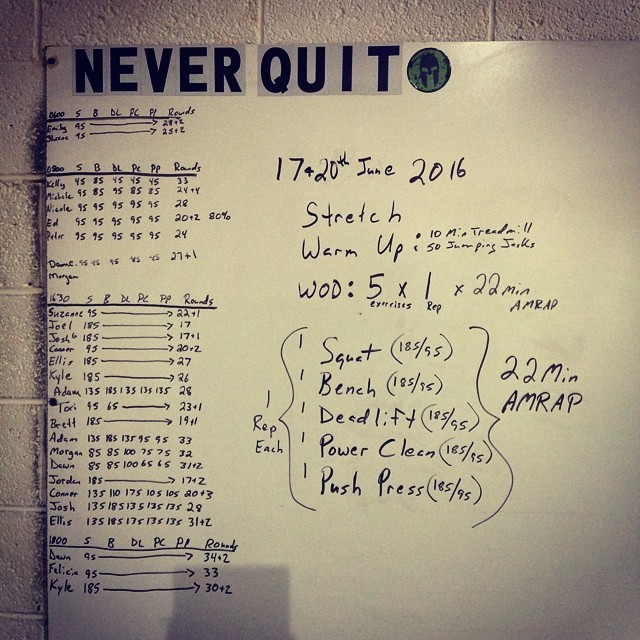 NEVER QUIT
0600 S B DL PC PP Rounds
Emily 95 → 28+2
95 → 25+2
0800 S B DL PC PP Rounds
Kelly 45 85 45 45 45 33
Michele 95 85 95 85 85 24+4
Nicole 95 95 95 95 95 28
Ed 95 95 95 95 95 20+2 80%
Peter 95 95 95 95 95 24
95 95 85 95 27+1
Morgan
1630 S B DL PC PP Rounds
Suzanne 95 → 22+1
Joel 185 → 17
Josh 185 → 17+1
Conner 95 → 20+2
Ellis 185 → 27
Kyle 185 → 26
Adam 135 185 135 135 135 28
Tori 95 65 → 23+1
Brett 185 → 19+1
Adam 135 185 135 95 95 33
Morgan 85 85 100 75 75 32
Dawn 85 85 100 65 65 31+2
Jordan 185 → 17+2
Conner 135 110 175 105 105 20+3
Josh 135 185 135 135 135 28
Ellis 135 185 175 135 135 31+2
1800 S B DL PC PP Rounds
Dawn 95 → 34+2
Felicia 95 → 33
Kyle 185 → 30+2
17+20th June 2016
Stretch
Warm Up: • 10 Min Treadmill
• 50 Jumping Jacks
WOD: 5 x 1 x 22 min
exercises Rep AMRAP
1 Squat (185/95)
1 Bench (185/95)
1 Deadlift (185/95)
1 Power Clean (185/95)
1 Push Press (185/95)
1
Rep
Each
22 Min
AMRAP